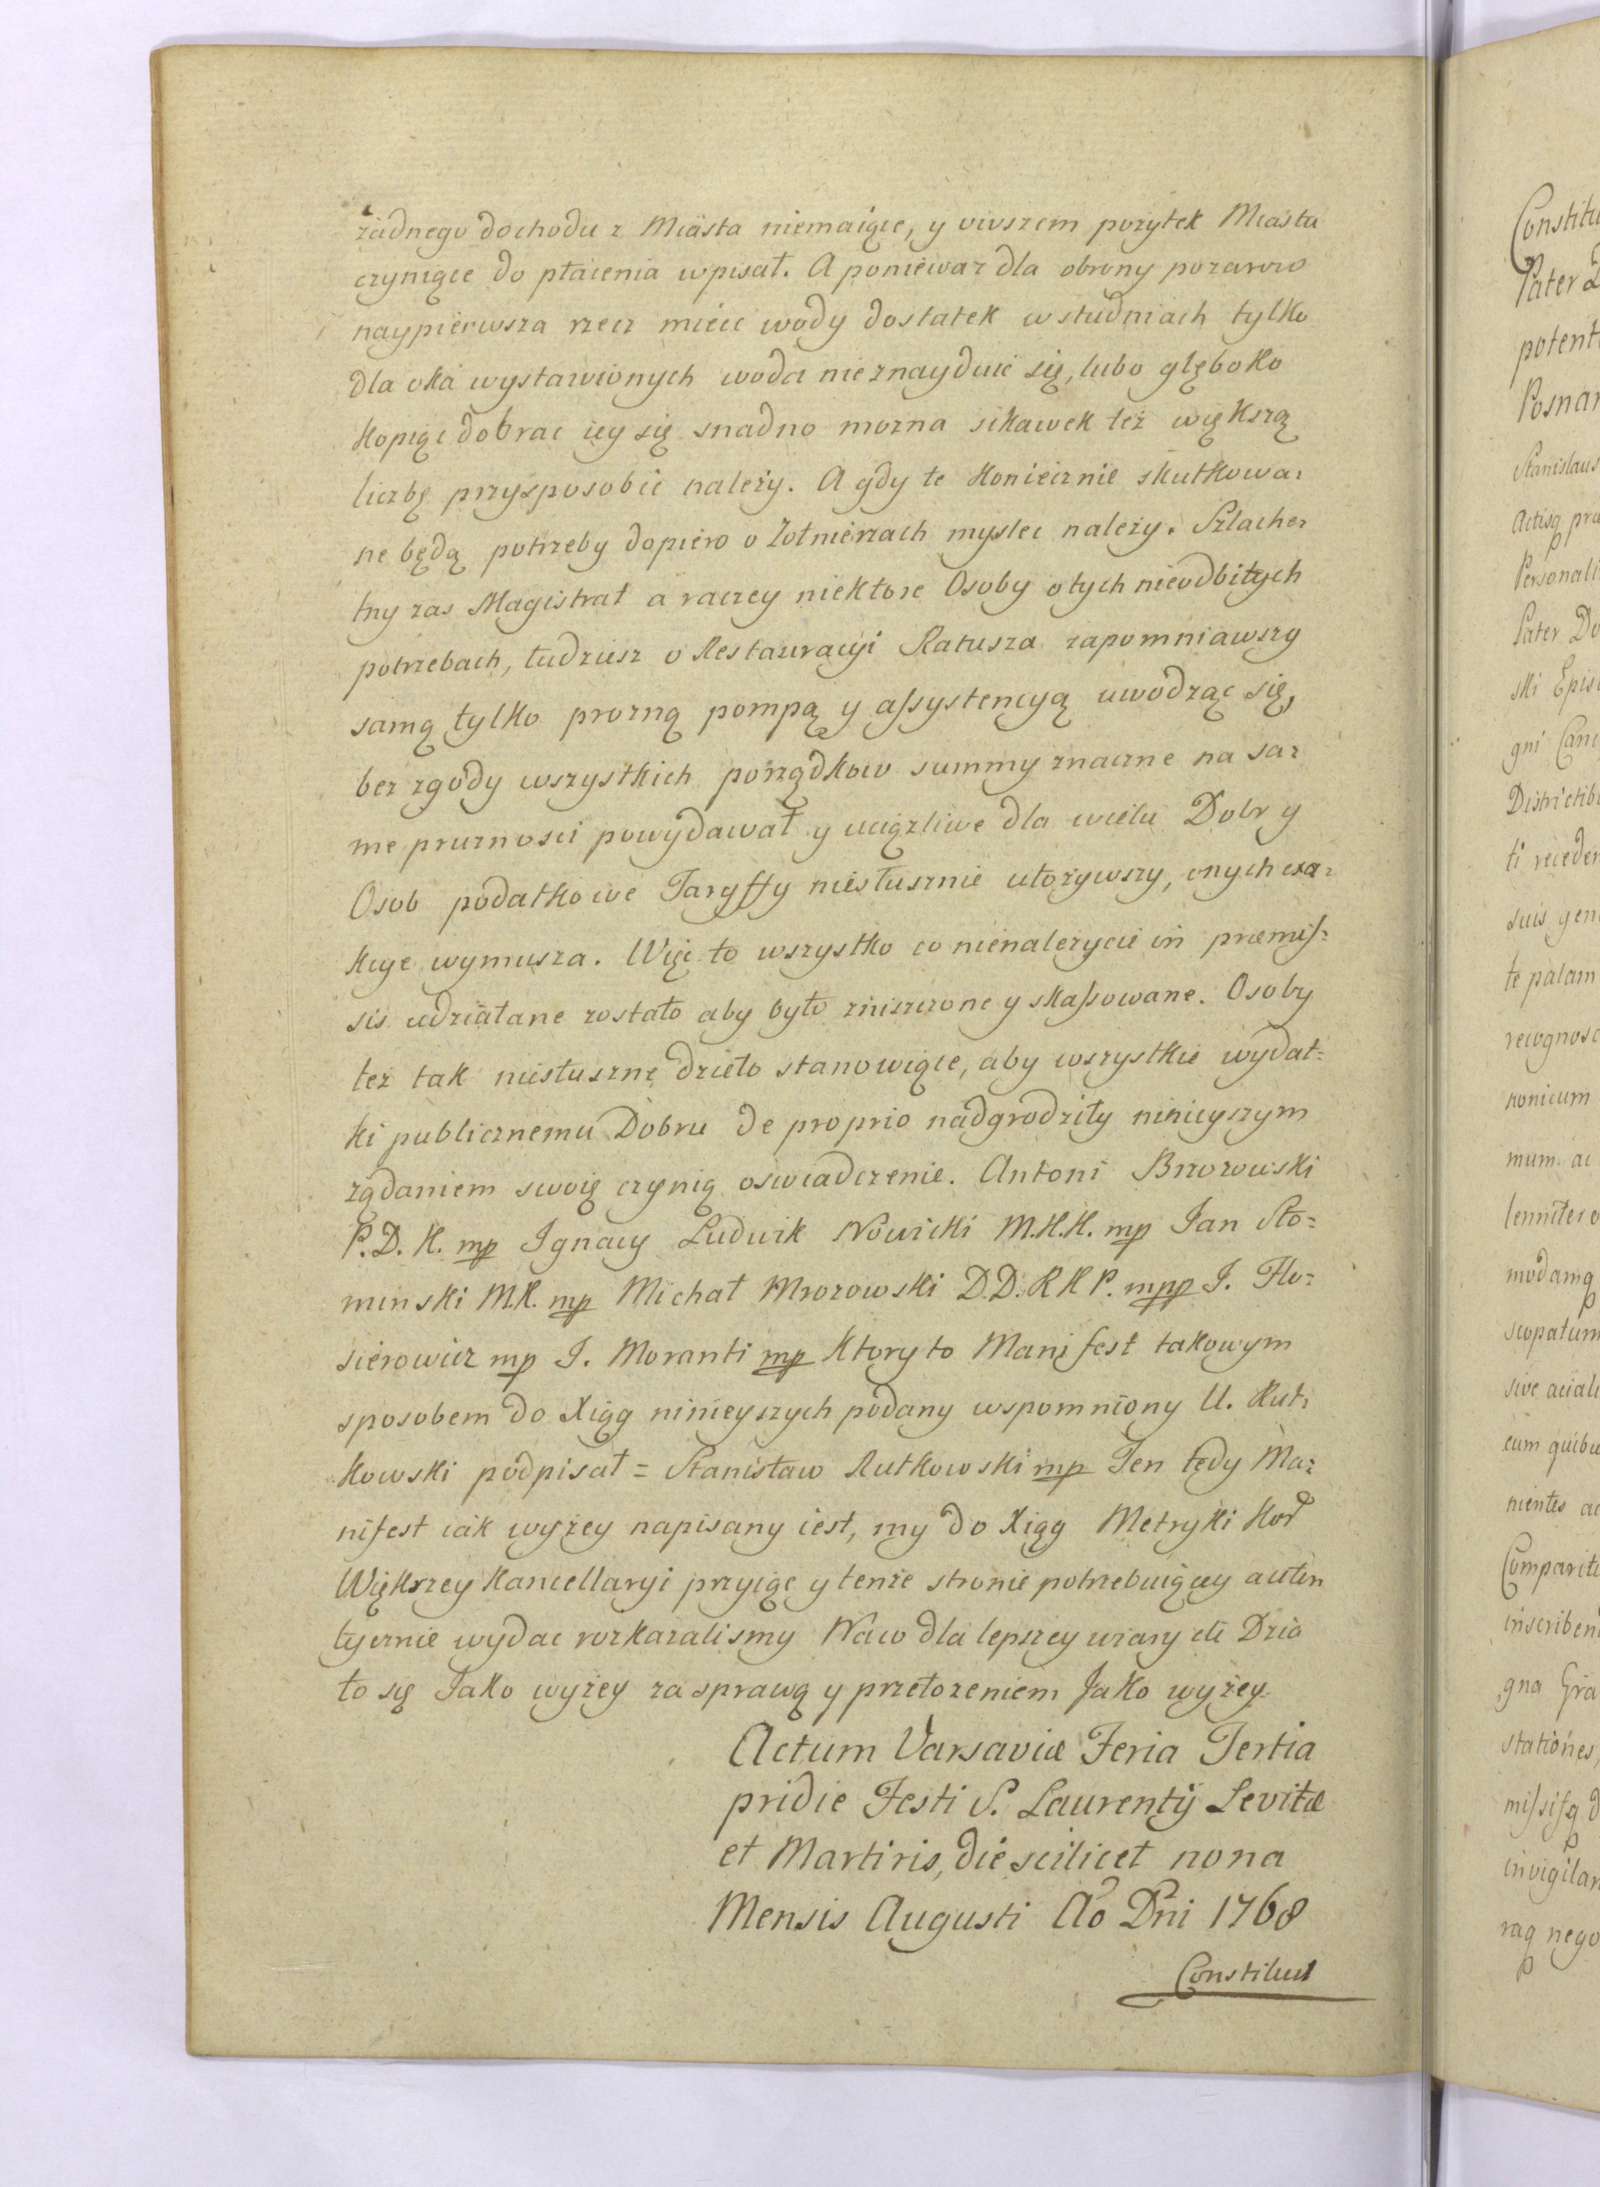 żadnego dochodu z Miasta niemaiące, y owszem pożytek Miastu
czyniące do płacenia wpisał. A poniewaz dla obrony pozarow
naypierwsza rzecz miec wody dostatek w studniach tylko
dla oka wystawionych woda nie znayduie się, lubo głęboko
kopiąc dobrac iey się snadno mozna sikawek też większą
liczbę przysposobic należy. A gdy te koniecznie skutkowa=
ne będą potrzeby dopiero o Zołnierzach myslec należy. Szlache=
tny zas Magistrat a raczey niektore Osoby o tych nieodbitych
potrzebach, tudziesz o Restauracyi Ratusza zapomniawszy
samą tylko prozną pompą y assystencyą uwodząc się,
bez zgody wszystkich porządkow summy znaczne na sa=
me pruznosci powydawał y uciązliwe dla wielu Dobr y
Osob podatkowe Taryffy niesłusznie ułożywszy, onych exa=
kcye wymusza. Więc to wszystko co nienalezycie in præmis=
sis udziałane zostało aby było zniszczone y skassowane. Osoby
tez tak niesłuszne dzieło stanowiące, aby wszystkie wydat=
ki publicznemu Dobru de proprio nadgrodziły ninieyszym
rządaniem swoię czynią oswiadczenie. Antoni Brzozowski
P. D. K. mp Ignacy Ludwik Nowicki M.K.K. mp Jan Sło=
minski M.K. mp Michał Mrozowski D.D.R K P. mpp J. Flo=
sierowicz mp J. Moranti mp Ktory to Manifest takowym
sposobem do Xiąg ninieyszych podany wspomniony U. Rut=
kowski podpisał = Stanisław Rutkowski mp Ten tedy Ma=
nifest iak wyżey napisany iest, my do Xiąg Metryki Kor
Większey Kancellaryi przyiąc y tenże stronie potrzebuiącey auten
tycznie wydac rozkazalismy Naco dla lepszey wiary etc Dzia
ło się Jako wyżey za sprawą y przełozeniem Jako wyżey.
Actum Varsaviæ Feria Tertia
pridie Festi S. Laurentij Levitæ
et Martiris, die scilicet nona
Mensis Augusti Ao Dni 1768
Constitut
Constitu
Pater
potent
Posnan
Stanislaus
Actisq
Personali
Pater Do
ski Epis
gni Canc
Districtib
ti receden
suis gen
te palam
recognosc
nonicum
mum ac
lenniter
modamq
scopatum
sive
cum quibu
nientes ac
Compariti
inscriben
gna Gra
stationes,
missisq d
invigilan
raq nego